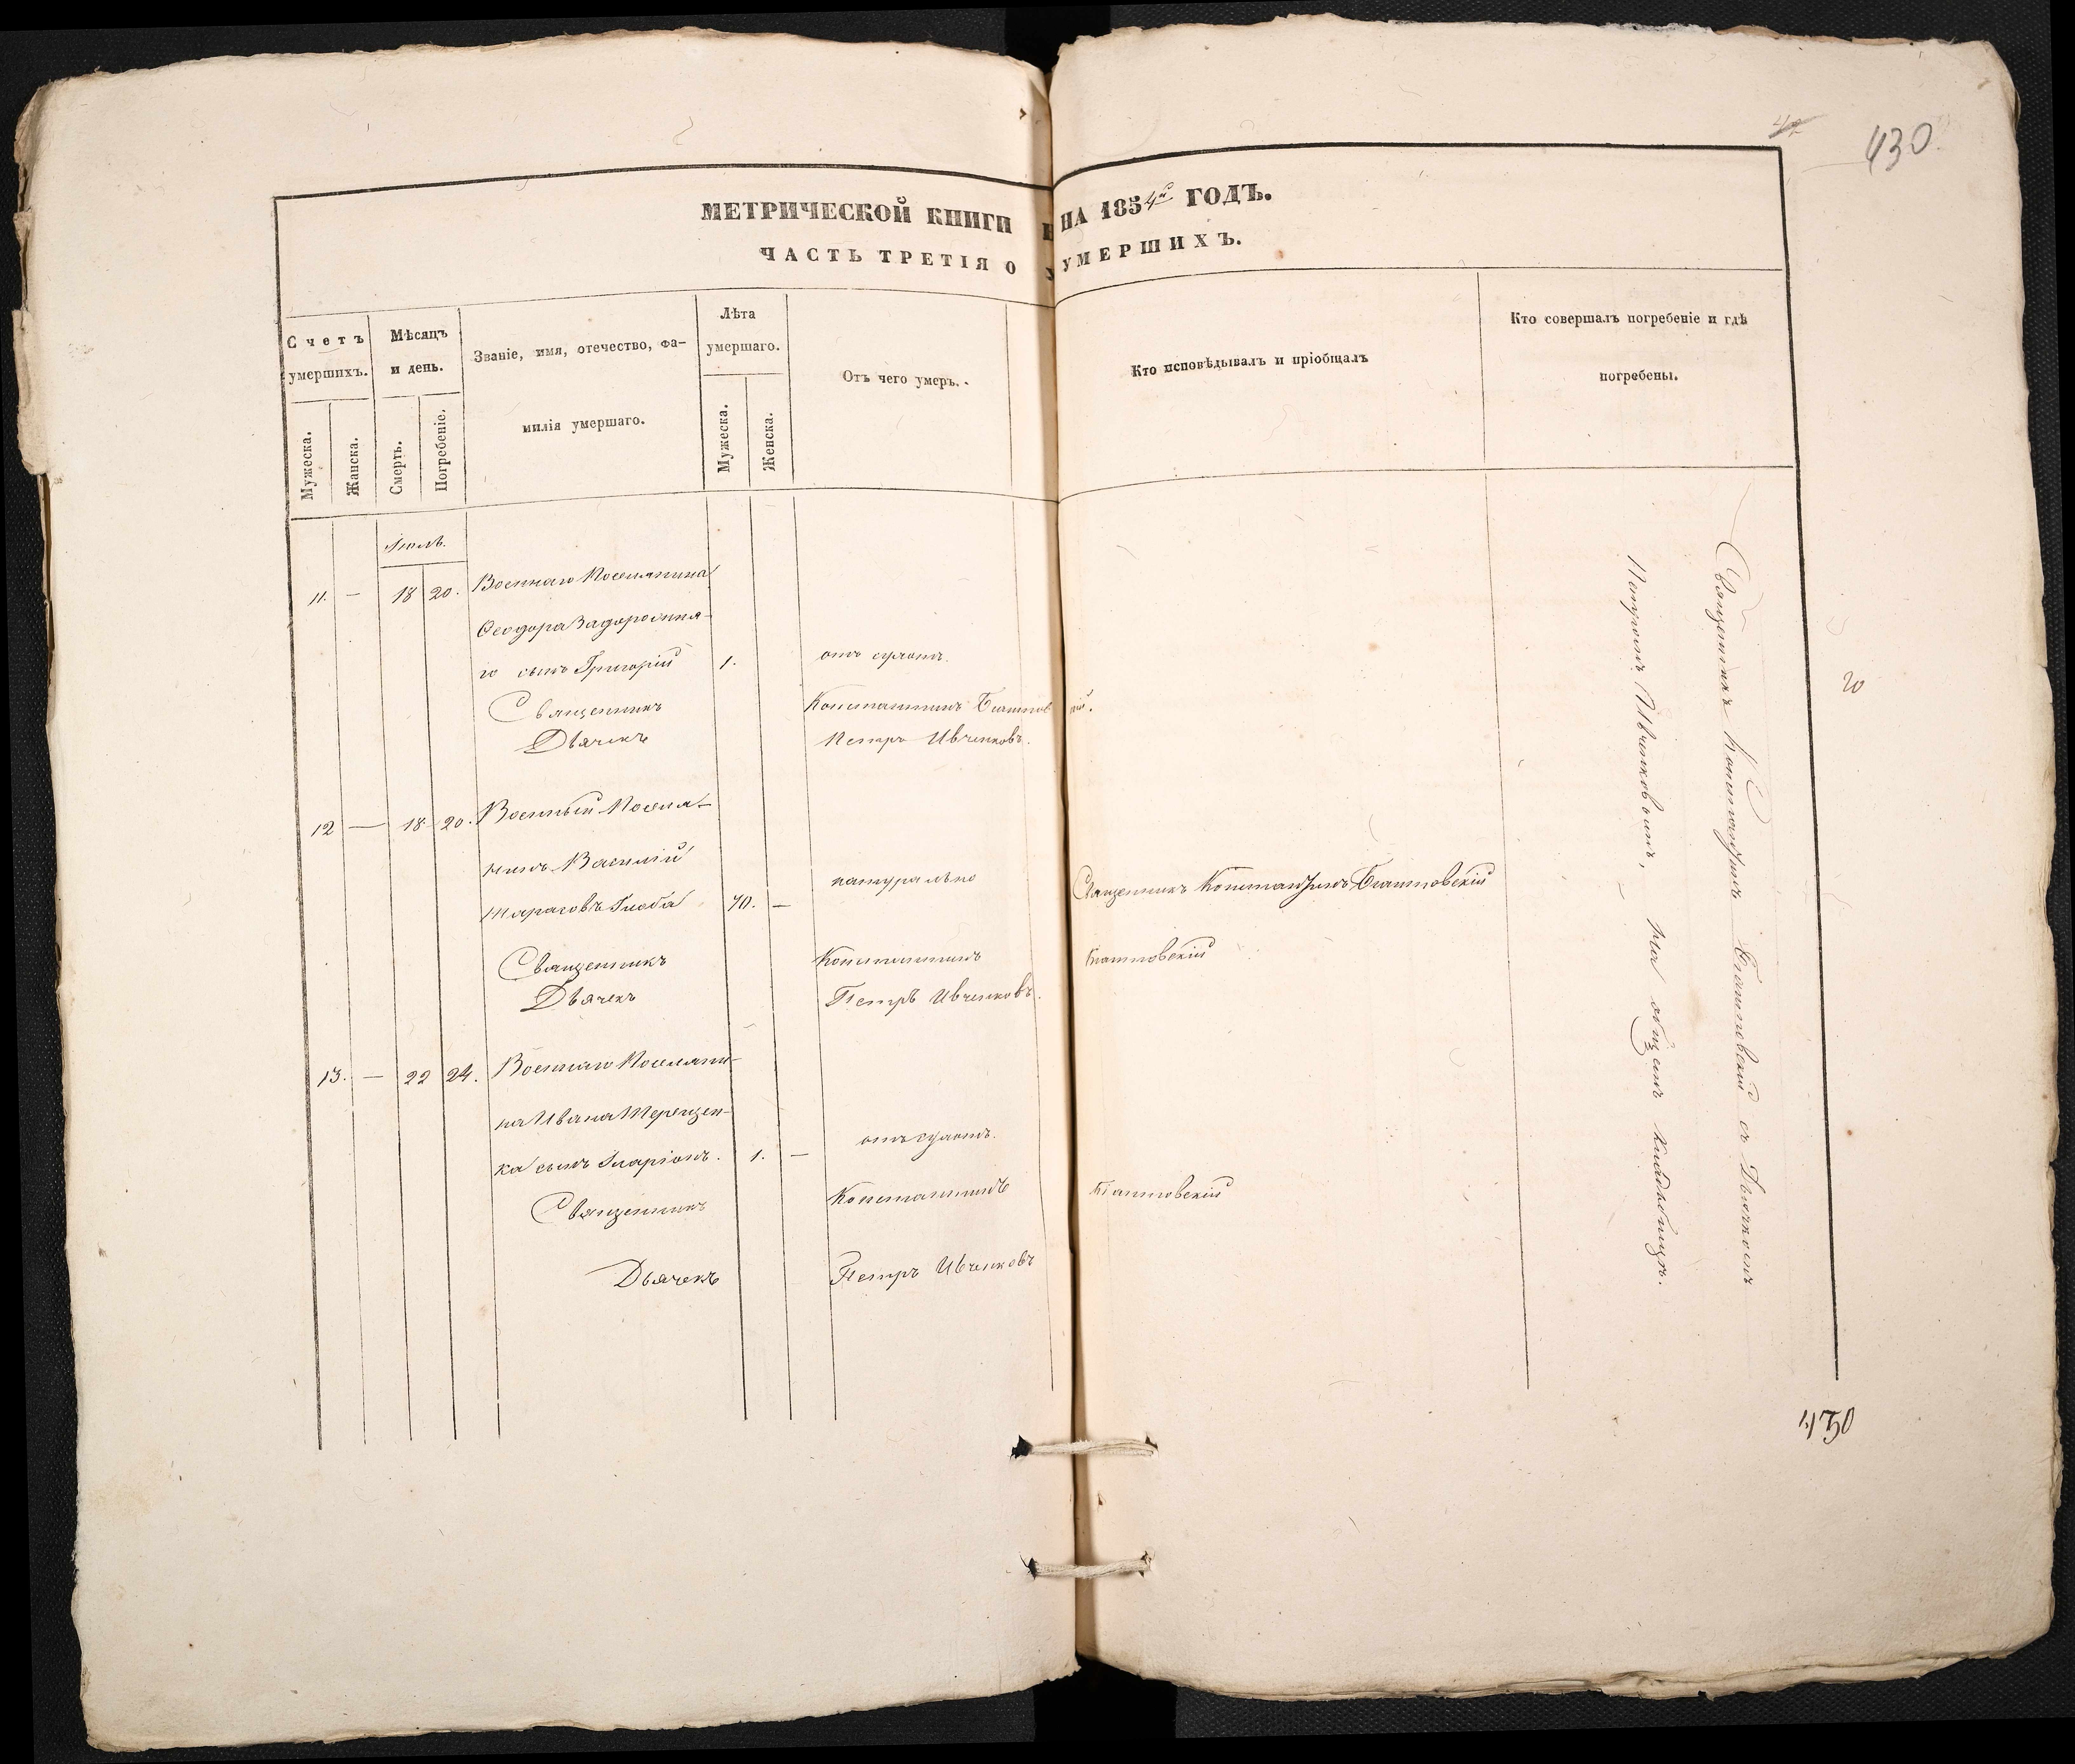 430.
МЕТРИЧЕСКОЙ КНИГИ НА 1854й ГОДЪ.
ЧАСТЬ ТРЕТІЯ О УМЕРШИХЪ.
Счетъ умершихъ.
Мужеска.
Жанска.
Мѣсяцъ и день.
Смерть.
Погребеніе.
Званіе, имя, отечество, фа-
милія умершаго.
Лѣта умершаго.
Мужеска.
Женска.
Отъ чего умеръ.
Кто исповѣдывалъ и пріобщалъ
Кто совершалъ погребеніе и гдѣ
погребены.
Іюль.
11. — 18 20. Военнаго Поселянина
Ѳеодора Задорожня-
го сынъ Григорій 1. отъ сухотъ.
Священникъ Константинъ
Дьячекъ Петръ Ивченковъ.
12 — 18 20. Военный Поселя-
нинъ Василій
Тарасовъ Глоба 70. — натурально Священникъ Константинъ
Священникъ Константинъ
Дьячекъ Петръ Ивченковъ.
13. — 22 24. Военнаго Поселяни-
на Ивана Терещен-
ка сынъ Иларіонъ. 1. — отъ сухотъ.
Священникъ Константинъ
Дьячекъ Петръ Ивченковъ
Священникъ Константинъ съ Дьячкомъ
Петромъ Ивченковымъ, на общемъ кладбищѣ.
20